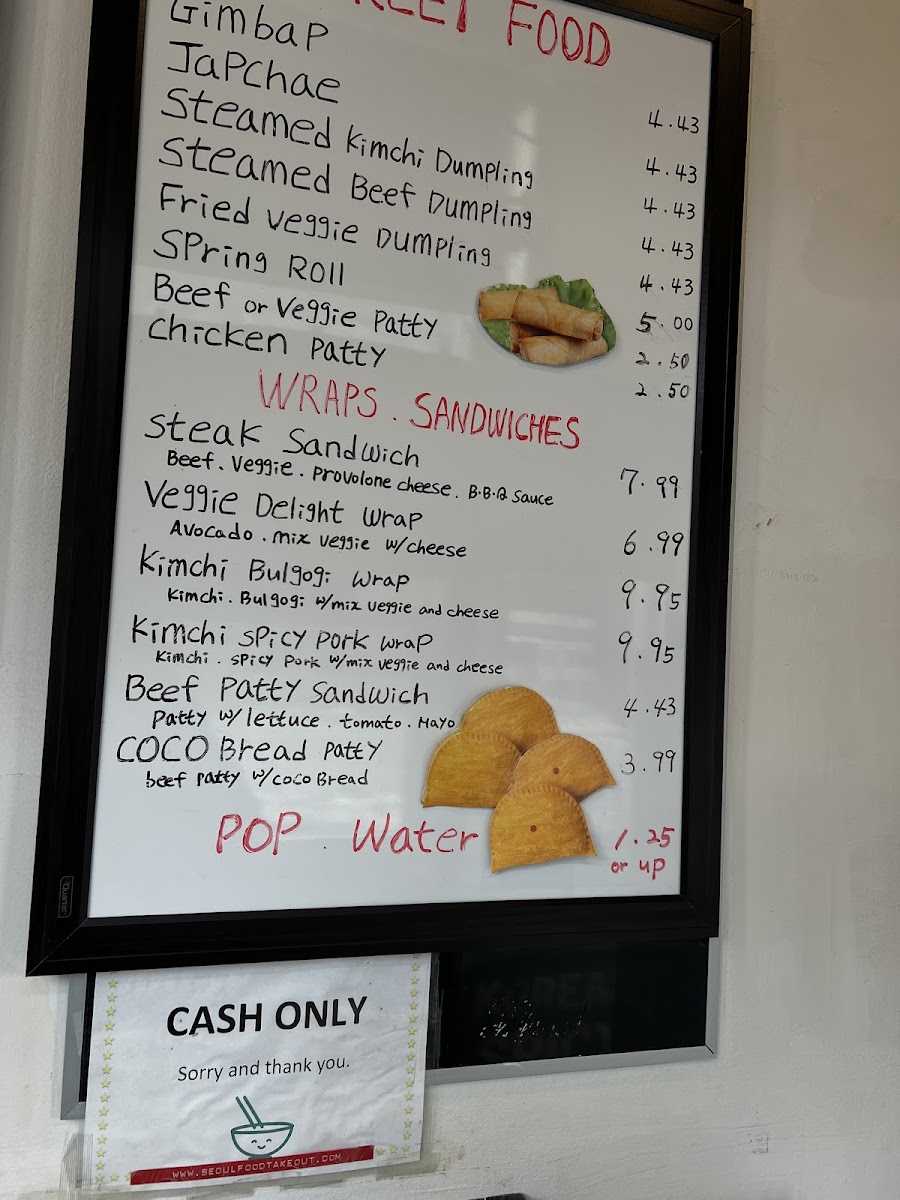 REET FOOD
Gimbap 4.43
Japchae 4.43
Steamed Kimchi Dumpling 4.43
Steamed Beef Dumpling 4.43
Fried Veggie Dumpling 4.43
Spring Roll 5.00
Beef or Veggie Patty 2.50
Chicken Patty 2.50
WRAPS . SANDWICHES
Steak Sandwich 7.99
Beef . Veggie . Provolone cheese . B.B.Q Sauce
Veggie Delight Wrap 6.99
Avocado . mix veggie w/cheese
Kimchi Bulgogi Wrap 9.95
Kimchi . Bulgogi w/mix veggie and cheese
Kimchi Spicy Pork Wrap 9.95
Kimchi . Spicy Pork w/mix veggie and cheese
Beef Patty Sandwich 4.43
Patty w/ lettuce . tomato . Mayo
COCO Bread Patty 3.99
beef patty w/coco Bread
POP . Water 1.25
or up
Quartet
CASH ONLY
Sorry and thank you.
WWW.SEOULFOODTAKEOUT.COM